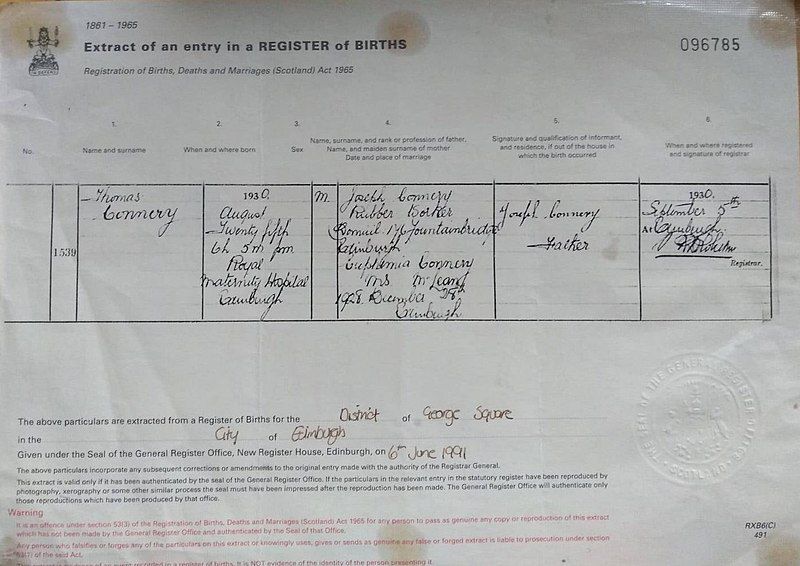 1861 – 1965
Extract of an entry in a REGISTER of BIRTHS
096785
Registration of Births, Deaths and Marriages (Scotland) Act 1965
IN DEFENS
No.
1.
Name and surname
2.
When and where born
3.
Sex
4.
Name, surname, and rank or profession of father,
Name, and maiden surname of mother
Date and place of marriage
5.
Signature and qualification of informant,
and residence, if out of the house in
which the birth occurred
6.
When and where registered
and signature of registrar
1539
Thomas
Connery
1930.
August
Twenty fifth
6h 5m pm
Royal
Maternity Hospital
Edinburgh
M.
Joseph Connery
Rubber Worker
176 Fountainbridge
Edinburgh
Euphemia Connery
M.S. McLean
1928 December 28th
Edinburgh
Joseph Connery
Father
1930.
September 5th
At Edinburgh
Registrar.
The above particulars are extracted from a Register of Births for the District of George Square
in the City of Edinburgh
Given under the Seal of the General Register Office, New Register House, Edinburgh, on 6th June 1991
The above particulars incorporate any subsequent corrections or amendments to the original entry made with the authority of the Registrar General.
This extract is valid only if it has been authenticated by the seal of the General Register Office. If the particulars in the relevant entry in the statutory register have been reproduced by
photography, xerography or some other similar process the seal must have been impressed after the reproduction has been made. The General Register Office will authenticate only
those reproductions which have been produced by that office.
Warning
It is an offence under section 53(3) of the Registration of Births, Deaths and Marriages (Scotland) Act 1965 for any person to pass as genuine any copy or reproduction of this extract
which has not been made by the General Register Office and authenticated by the Seal of that Office.
Any person who falsifies or forges any of the particulars on this extract or knowingly uses, gives or sends as genuine any false or forged extract is liable to prosecution under section
53(1) of the said Act.
recorded in a register of births. It is NOT evidence of the identity of the person presenting it.
RXB6(C)
491
THE SEAL OF THE GENERAL REGISTER OFFICE SCOTLAND